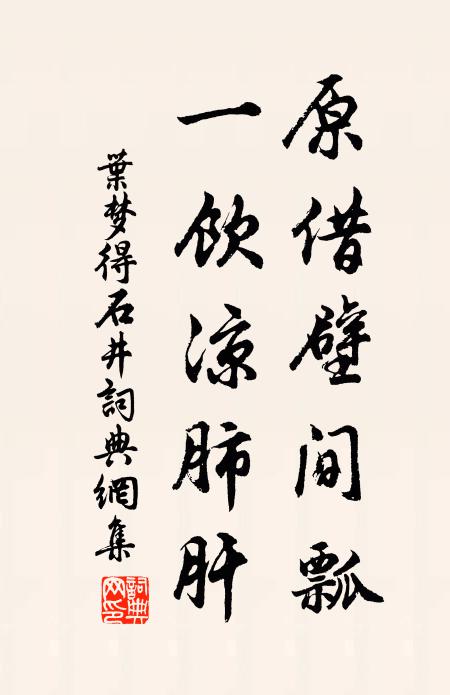 原借壁间瓢
一饮凉肺肝
葉梦得石井詞典網集
詞典网印